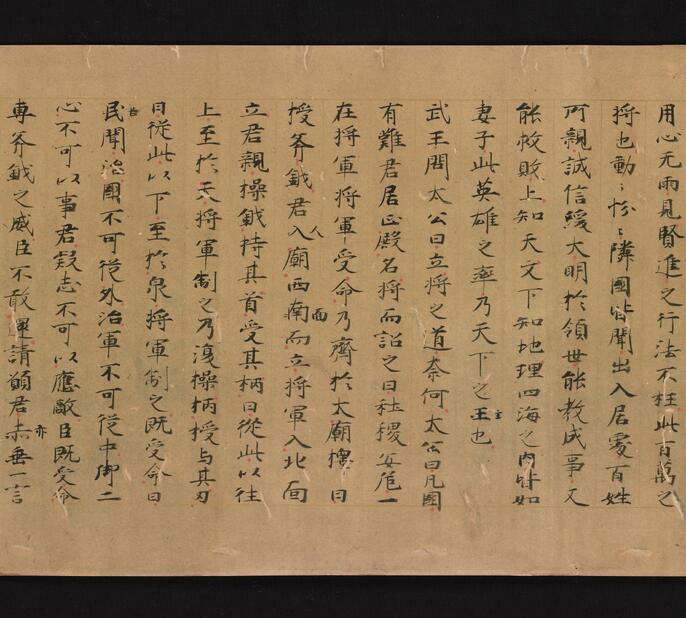 用心无兩見賢進之行法不枉此百萬之
将也動〻忩〻隣國皆聞出入居處百姓
所親誠信緩大明於領世能教成事又
能救敗上知天文下知地理四海之内皆如
妻子此英雄之率乃天下之王也
主
武王問太公曰立将之道奈何太公曰凡國
有難君居正殿名将而詔之曰社稷安危一
在将軍将軍〻受命乃齊於太廟擇日
授斧鉞君入廟西南而立将軍入北面
人
面
立君親操鉞持其首受其柄曰從此以往
上至於天将軍制之乃復操柄授与其刃
曰從此以下至於泉将軍制之既受命曰
民聞治國不可從外治軍不可從中御二
心不可以事君疑志不可以應敵臣既受命
專斧鉞之威臣不敢還請願君赤垂一言
亦